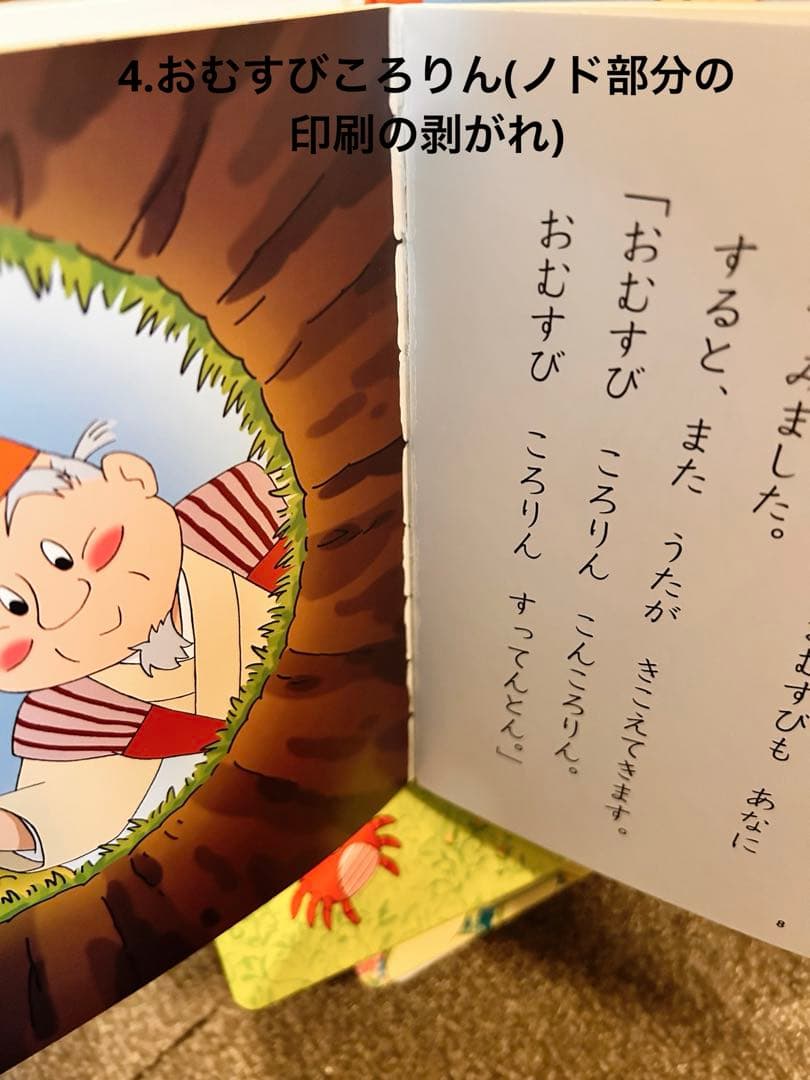 4.おむすびころりん(ノド部分の
印刷の剥がれ)
みました。
おむすびも あなに
すると、また うたが きこえてきます。
「おむすび ころりん こんころりん。
おむすび ころりん すってんとん。」
8